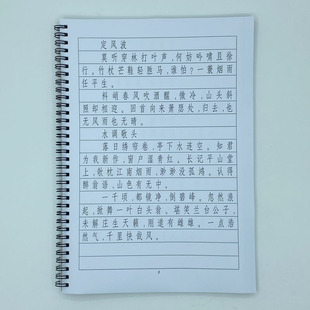 定风波
莫听穿林打叶声，何妨吟啸且徐
行。竹杖芒鞋轻胜马，谁怕？一蓑烟雨
任平生。
料峭春风吹酒醒，微冷，山头斜
照却相迎。回首向来萧瑟处，归去，也
无风雨也无晴。
水调歌头
落日绣帘卷，亭下水连空。知君
为我新作，窗户湿青红。长记平山堂
上，欹枕江南烟雨，渺渺没孤鸿。认得
醉翁语，山色有无中。
一千顷，都镜净，倒碧峰。忽然浪
起，掀舞一叶白头翁。堪笑兰台公子，
未解庄生天籁，刚道有雌雄。一点浩
然气，千里快哉风。